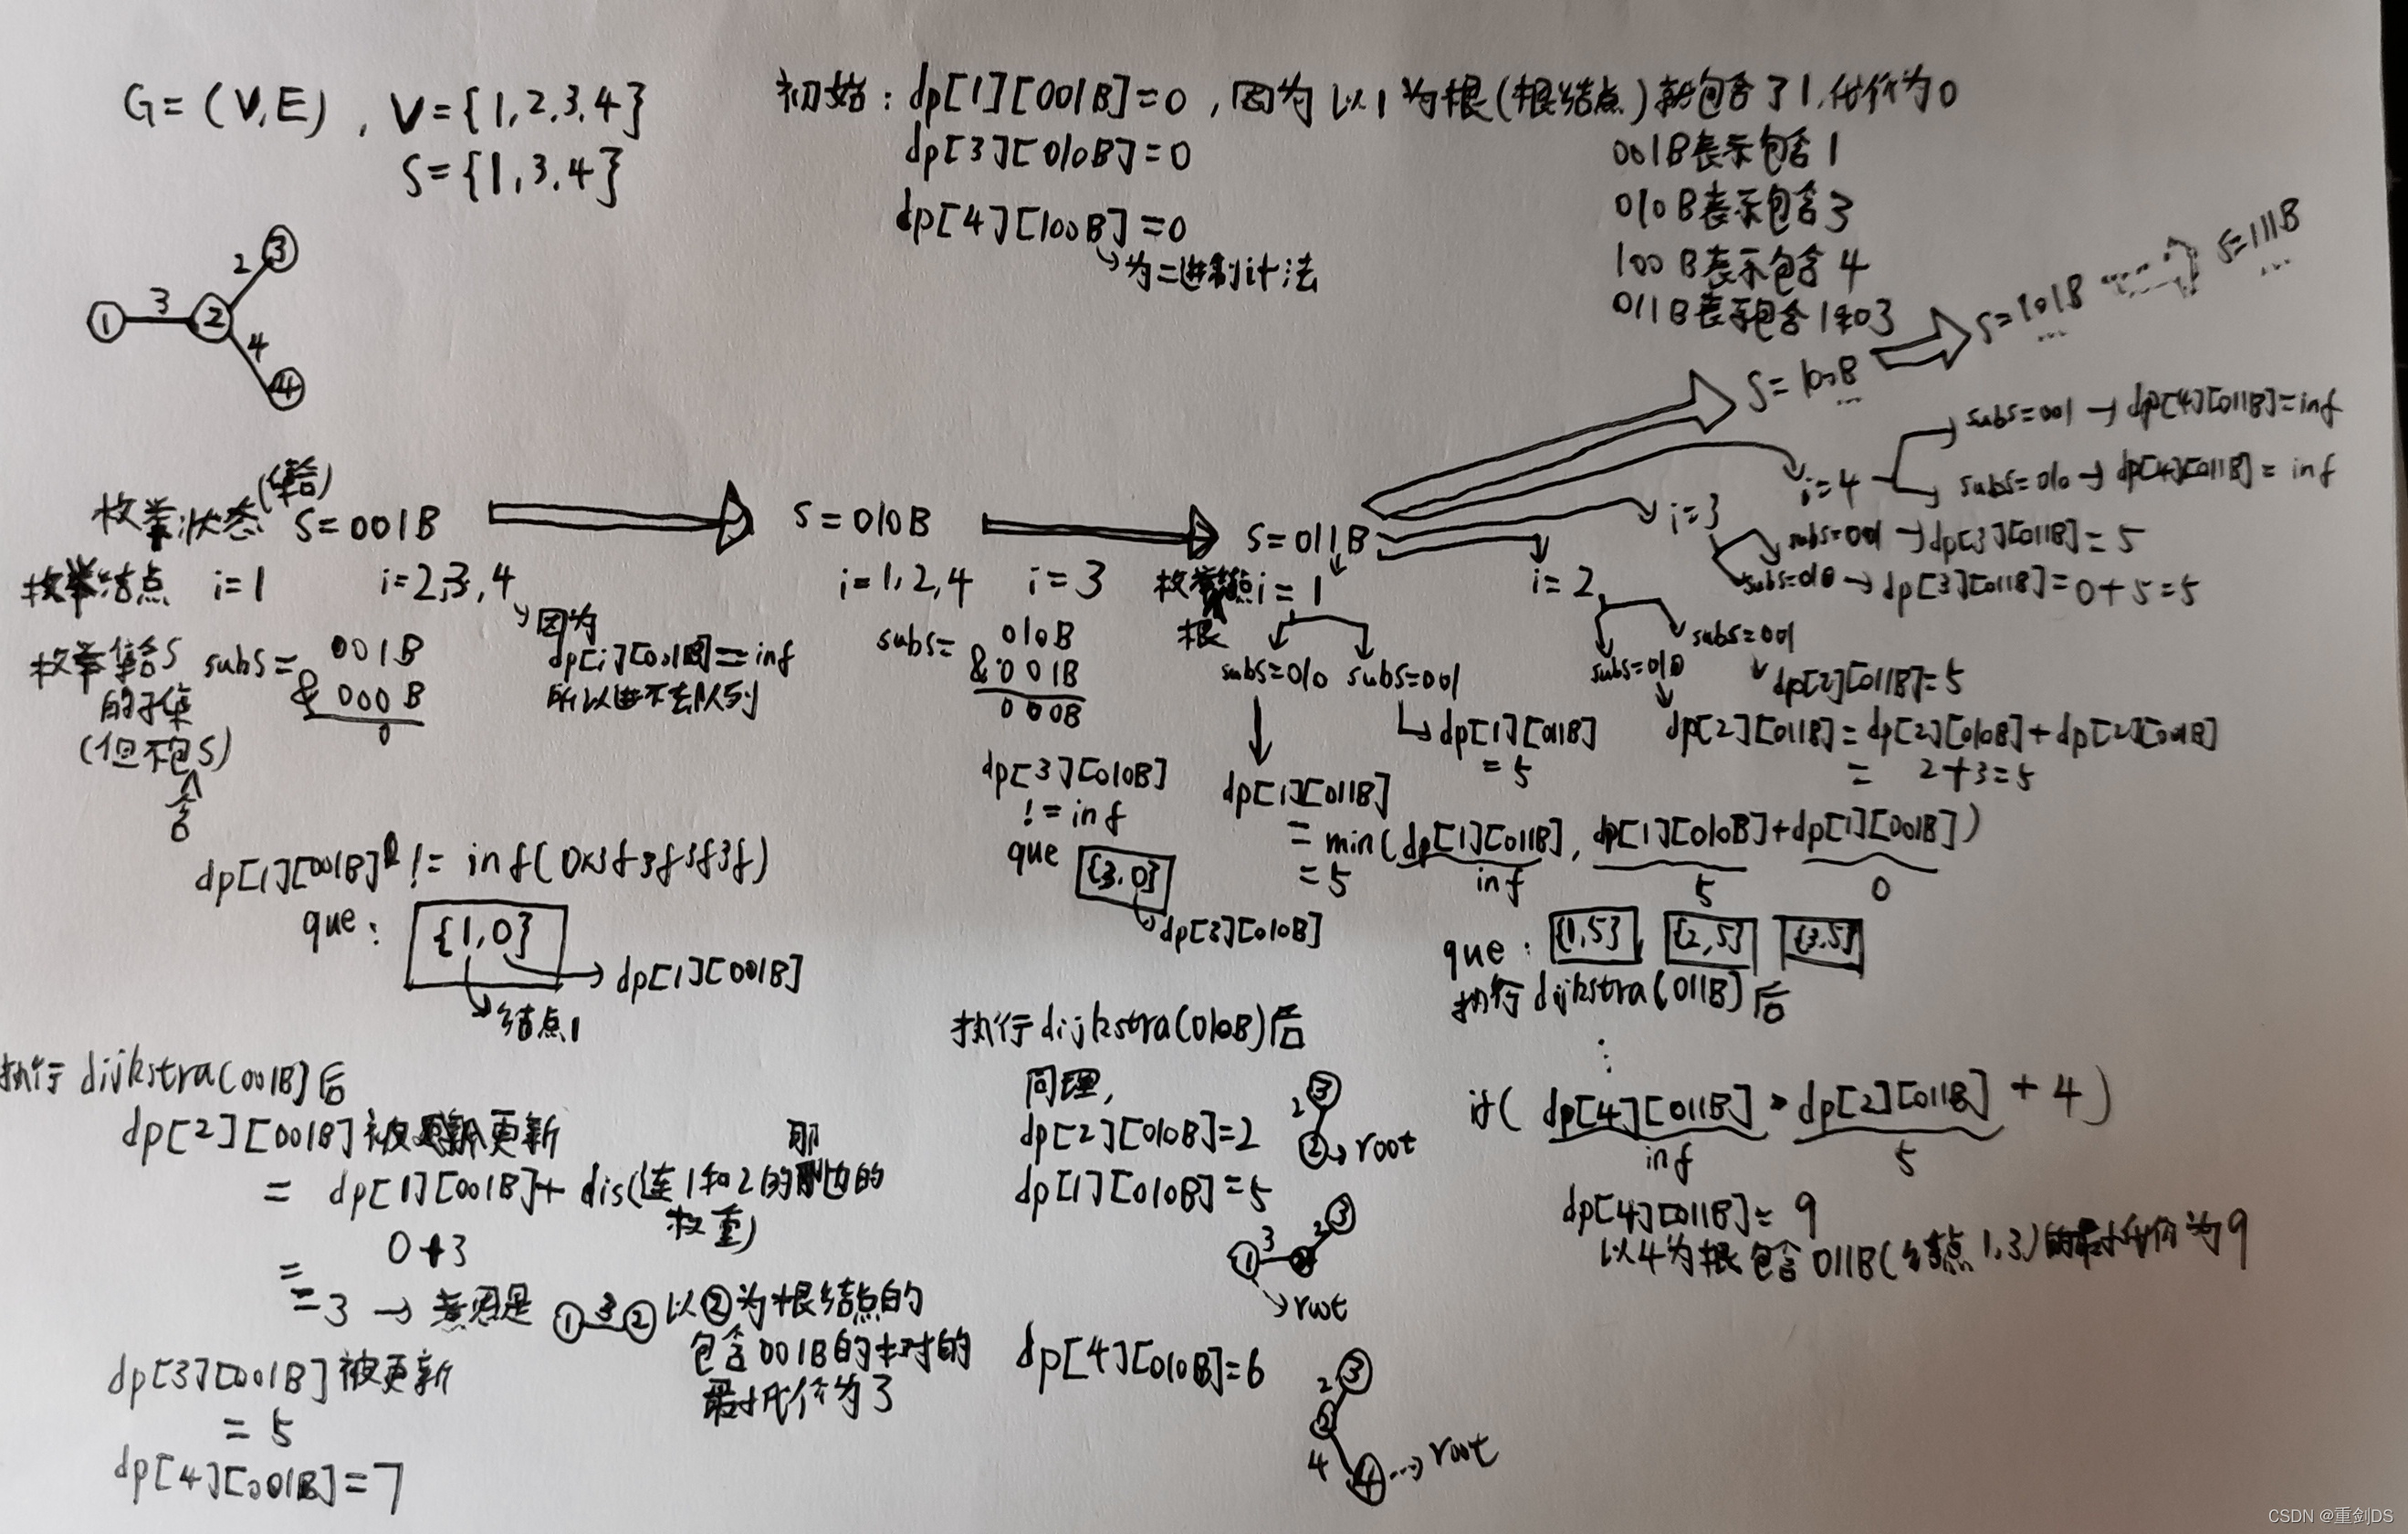 G=(V,E), V={1,2,3,4}
S={1,3,4}
初始:dp[1][001B]=0,因为以1为根(根结点)就包含了1,代价为0
dp[3][010B]=0
dp[4][100B]=0
为二进制计法
001B表示包含1
010B表示包含3
100B表示包含4
011B表示包含1和3
1 3 2 2 3 4 4
枚举状态(集合) S=001B
枚举结点 i=1 i=2,3,4
因为
dp[i][001B]==inf
所以进不去队列
枚举集合S
的子集
(但不包含S)
subs=
001B
& 000B
0
dp[1][001B] != inf(0x3f3f3f3f)
que: {1,0}
dp[1][001B]
结点1
执行dijkstra(001B)后
dp[2][001B]被更新
= dp[1][001B]+dis(连1和2的那边的
权重)
= 0+3
=3 → 意思是 1 3 2 以②为根结点的
包含001B的树对的
最小代价为3
dp[3][001B]被更新
= 5
dp[4][001B]=7
S=010B
i=1,2,4 i=3
subs=
010B
&001B
000B
dp[3][010B]
!=inf
que {3,0}
dp[3][010B]
执行dijkstra(010B)后
同理,
dp[2][010B]=2
3 2 2 → root
dp[1][010B]=5
1 3 2 3
root
dp[4][010B]=6
2 3
4 4 → root
S=011B
枚举 i=1
根
subs=010 subs=001
dp[1][011B]
=5
dp[1][011B]
=min(dp[1][011B], dp[1][010B]+dp[1][001B])
inf 5 0
=5
i=2
subs=010 subs=001
dp[2][011B]=5
dp[2][011B]=dp[2][010B]+dp[2][001B]
= 2+3=5
i=3
subs=001→dp[3][011B]=5
subs=010→dp[3][011B]=0+5=5
i=4
subs=001→dp[4][011B]=inf
subs=010→dp[4][011B]=inf
S=100B
...
S=101B
...
S=111B
...
que: {1,5} {2,5} {3,5}
执行dijkstra(011B)后
if( dp[4][011B] > dp[2][011B] + 4)
inf 5
dp[4][011B]=9
以4为根包含011B(结点1,3)的最小代价为9
CSDN @重剑DS